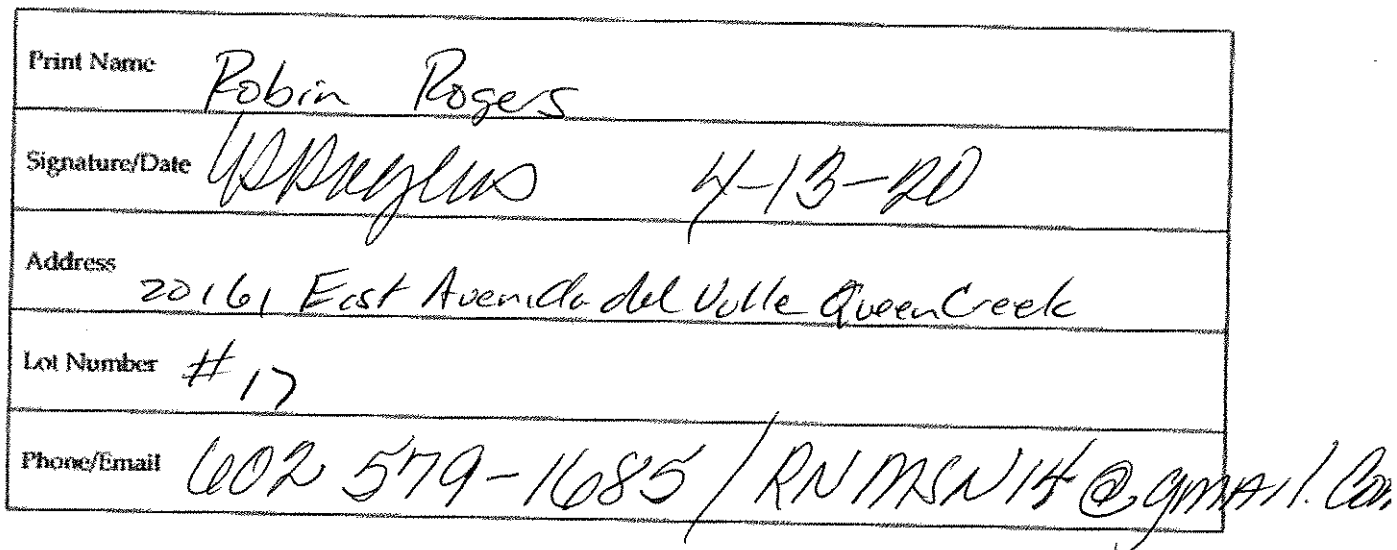 Print Name Robin Rogers
Signature/Date 4-13-20
Address 20161 East Avenida del Valle Queen Creek
Lot Number #17
Phone/Email 602 579-1685 / RNMSN14@gmail.com